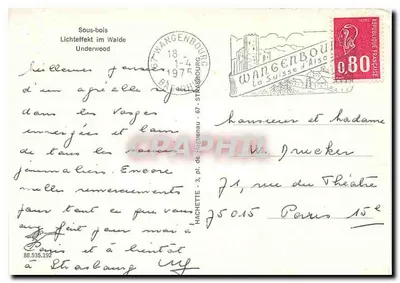 Sous-bois
Lichteffekt im Walde
Underwood
67 WANGENBOURG
18 H
1-4
1975
WANGENBOURG
La Suisse d'Alsace
0,80
REPUBLIQUE FRANCAISE
Meilleures pensées
d'un agréable séjour
dans les Vosges
enneigées et loin
de tous les soucis
journaliers. Encore
mille remerciements
pour tout ce que vous
avez fait pour moi à
Paris et à bientôt
à Strasbourg
88.535.192
HACHETTE - 3, pl. de Haguenau - 67 - STRASBOURG
Monsieur et Madame
Drucker
71, rue du Théâtre
75015 Paris 15e